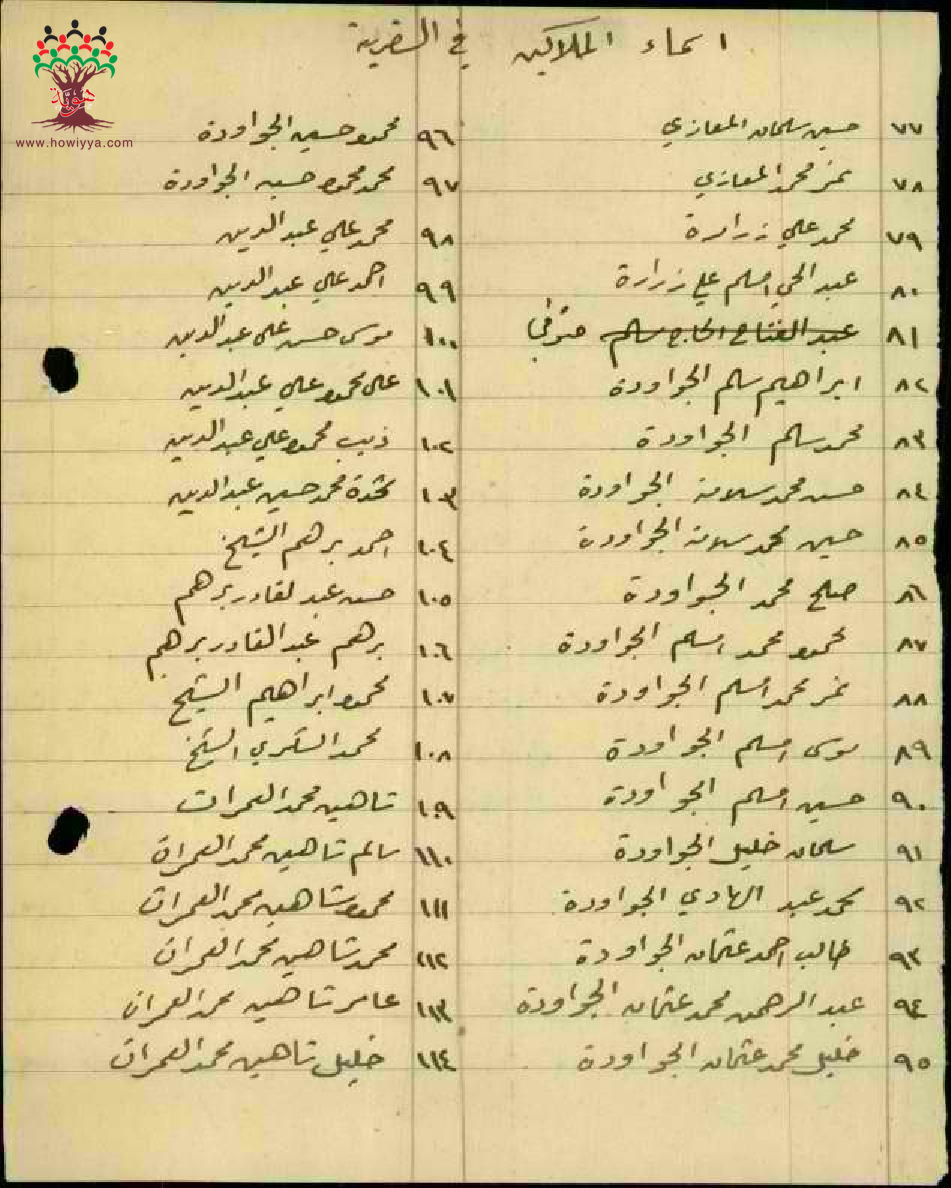 اسماء الملاكين في السفرية
www.howiyya.com
هوية
٧٧ حسين سلمان المغازي
٧٨ نمر محمد المغازي
٧٩ محمد علي زرارة
٨٠ عبد الحي اسلم علي زرارة
٨١ عبد الفتاح الحاج سلم متوفي
٨٢ ابراهيم سلم الجواودة
٨٣ محمد سلم الجواودة
٨٤ حسن محمد سلامة الجواودة
٨٥ حسين محمد سلامة الجواودة
٨٦ صلح محمد الجواودة
٨٧ محمود محمد اسلم الجواودة
٨٨ نمر محمد اسلم الجواودة
٨٩ موسى اسلم الجواودة
٩٠ حسين اسلم الجواودة
٩١ سلمان خليل الجواودة
٩٢ محمد عبد الهادي الجواودة
٩٣ طالب احمد عثمان الجواودة
٩٤ عبد الرحمن محمد عثمان الجواودة
٩٥ خليل محمد عثمان الجواودة
٩٦ محمود حسين الجواودة
٩٧ محمد محمود حسين الجواودة
٩٨ محمد علي عبد الدين
٩٩ احمد علي عبد الدين
١٠٠ موسى حسن علي عبد الدين
١٠١ علي محمود علي عبد الدين
١٠٢ ذيب محمود علي عبد الدين
١٠٣ محمد حسين عبد الدين
١٠٤ احمد برهم الشيخ
١٠٥ حسن عبد لقادر برهم
١٠٦ برهم عبد القادر برهم
١٠٧ محمود ابراهيم الشيخ
١٠٨ محمد الشكري الشيخ
١٠٩ شاهين محمد العمران
١١٠ سالم شاهين محمد العمران
١١١ محمود شاهين محمد العمران
١١٢ محمد شاهين محمد العمران
١١٣ عامر شاهين محمد العمران
١١٤ خليل شاهين محمد العمران